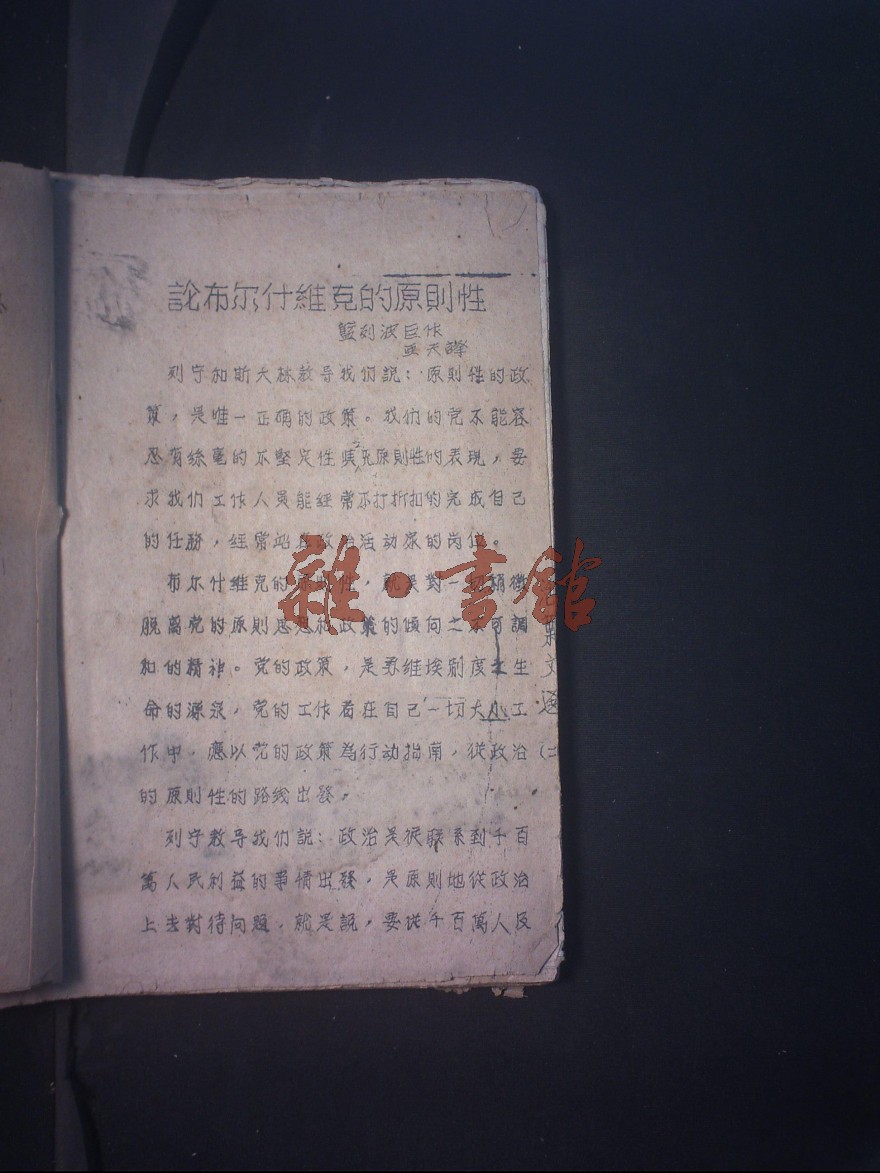 論布尔什維克的原則性
藍刻波臣作
天譯
列宁和斯大林教导我们說：原則性的政
策，是惟一正确的政策。我们的党不能容
忍有絲毫的不堅定性喪原則性的表現，要
求我们工作人員能經常不打折扣的完成自己
的任務，經常站在政治活动家的岗位。
布尔什維克的原則性，就是對一切稍微
脫离党的原則思想和政策的傾向之不可調
和的精神。党的政策，是苏維埃制度之生
命的源泉，党的工作者在自己一切大小工
作中，應以党的政策為行动指南，從政治
的原則性的路线出發。
列宁教导我们說：政治是從联系到千百
萬人民利益的事情出發，是原則地從政治
上去對待问題，就是說，要從千百萬人反
雜·書館